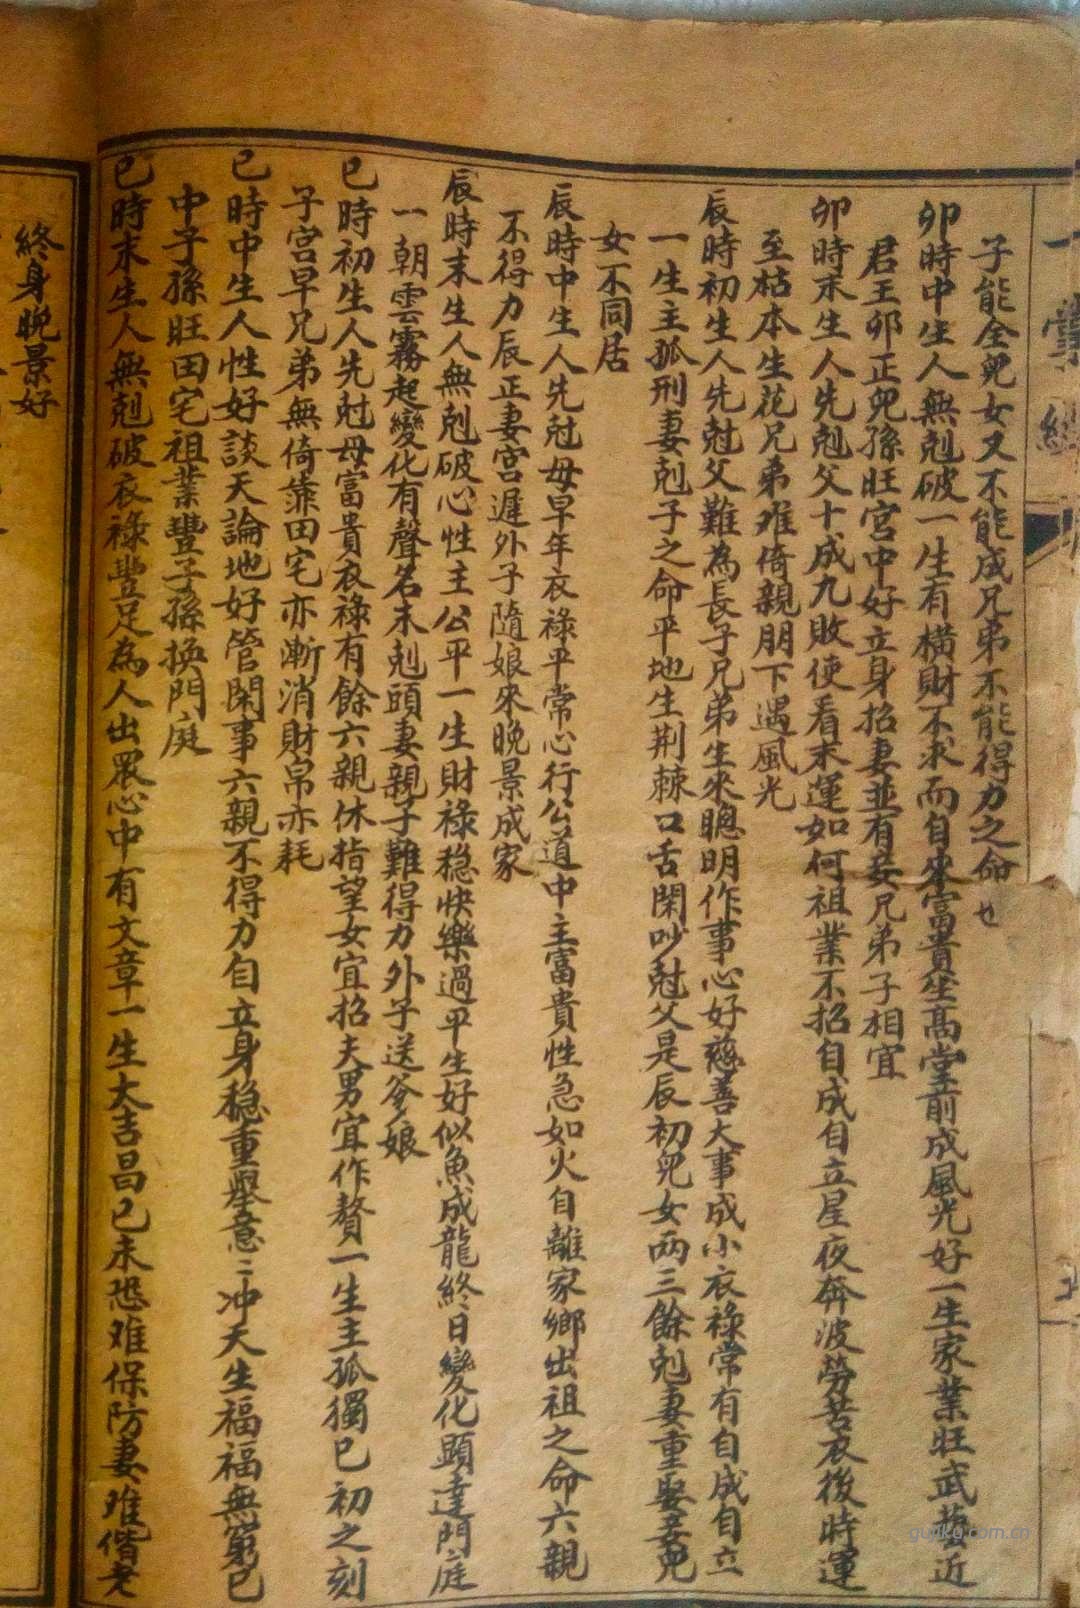 子能全兒女又不能成兄弟不能得力之命也
卯時中生人無剋破一生有橫財不求而自來富貴坐高堂前成風光好一生家業旺武藝近
君王卯正兒孫旺宮中好立身招妻並有妾兄弟子相宜
卯時末生人先剋父十成九敗使看末運如何祖業不招自成自立星夜奔波勞苦衣後時運
至枯本生花兄弟难倚親朋下遇風光
辰時初生人先尅父難為長子兄弟生來聰明作事心好慈善大事成小衣祿常有自成自立
一生主孤刑妻剋子之命平地生荆棘口舌閑吵尅父是辰初兒女两三餘剋妻重娶妾兒
女不同居
辰時中生人先尅母早年衣祿平常心行公道中主富貴性急如火自離家鄉出祖之命六親
不得力辰正妻宮遲外子隨娘來晚景成家
辰時末生人無剋破心性主公平一生財祿稳快樂過平生好似魚成龍終日變化顕達門庭
一朝雲霧起變化有聲名末剋頭妻親子難得力外子送爷娘
巳時初生人先尅母富貴衣祿有餘六親休指望女宜招夫男宜作贅一生主孤獨巳初之刻
子宮早兄弟無倚靠田宅亦漸消財帛亦耗
巳時中生人性好談天論地好管閑事六親不得力自立身稳重舉意二冲天生福福無窮巳
中子孫旺田宅祖業豐子孫換門庭
巳時末生人無剋破衣祿豐足為人出眾心中有文章一生大吉昌巳末恐难保防妻难偕老
終身晚景好
guilkg.com.cn